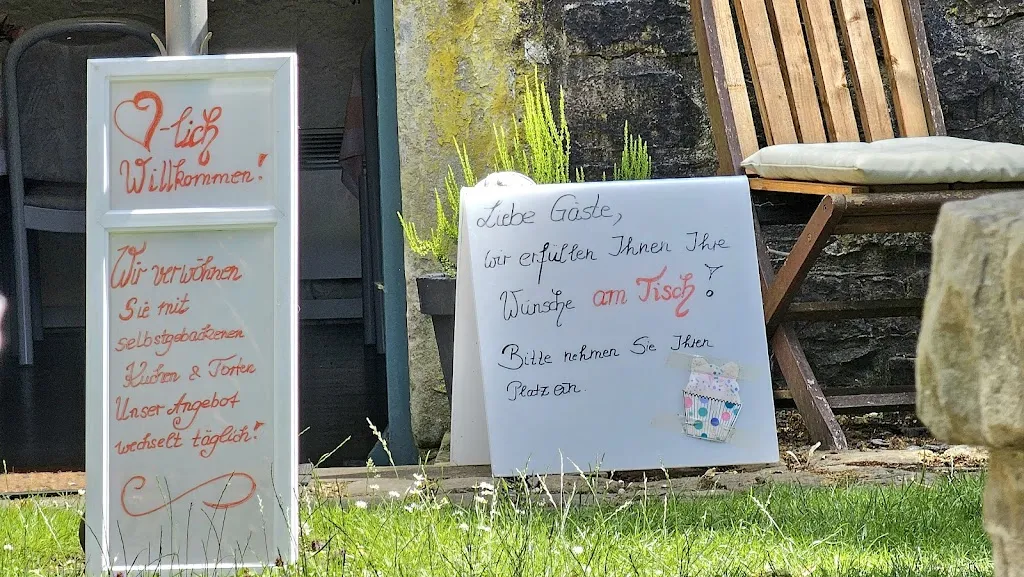 ♡-lich
Willkommen!
Wir verwöhnen
Sie mit
selbstgebackenen
Kuchen & Torten
Unser Angebot
wechselt täglich!
Liebe Gäste,
wir erfüllen Ihnen Ihre
Wünsche am Tisch!
Bitte nehmen Sie Ihren
Platz ein.